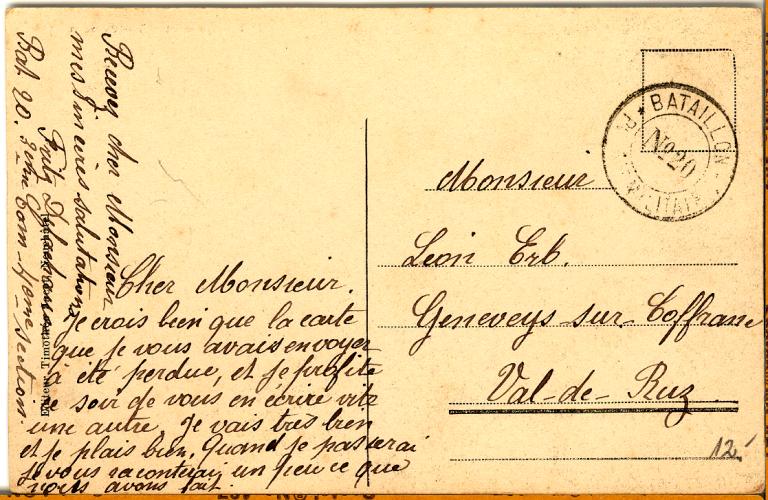 Cher Monsieur.
Je crois bien que la carte
que je vous avais envoyer
a été perdue, et je profite
ce soir de vous en écrire vite
une autre. Je vais très bien
et je plais bien. Quand je passerai
je vous raconterai un peu ce que
nous avons fait.
Recevez cher Monsieur
mes sincères salutations
Fritz
Bat. 20. 2ème Com. 4ème section.
BATAILLON
No 20
Monsieur
Léon Erb.
Geneveys-sur-Coffrane
Val-de-Ruz
12.